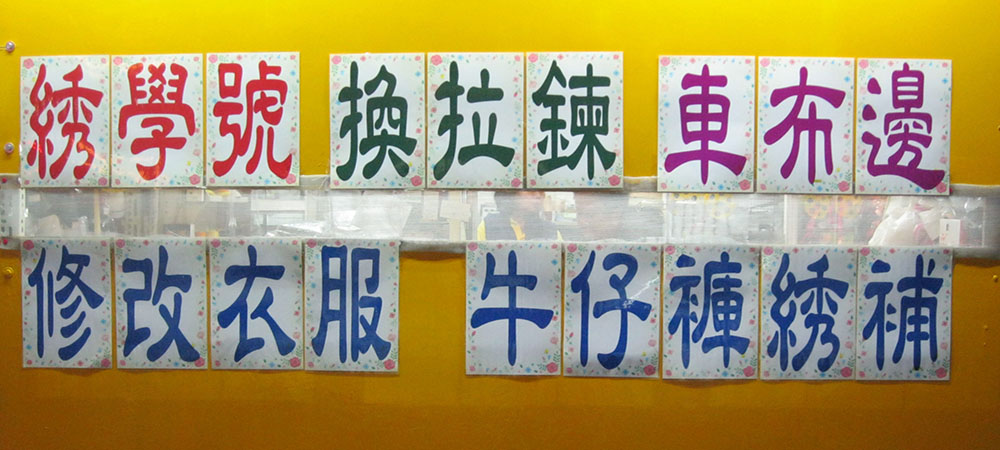 綉學號 換拉鍊 車布邊
修改衣服 牛仔褲綉補